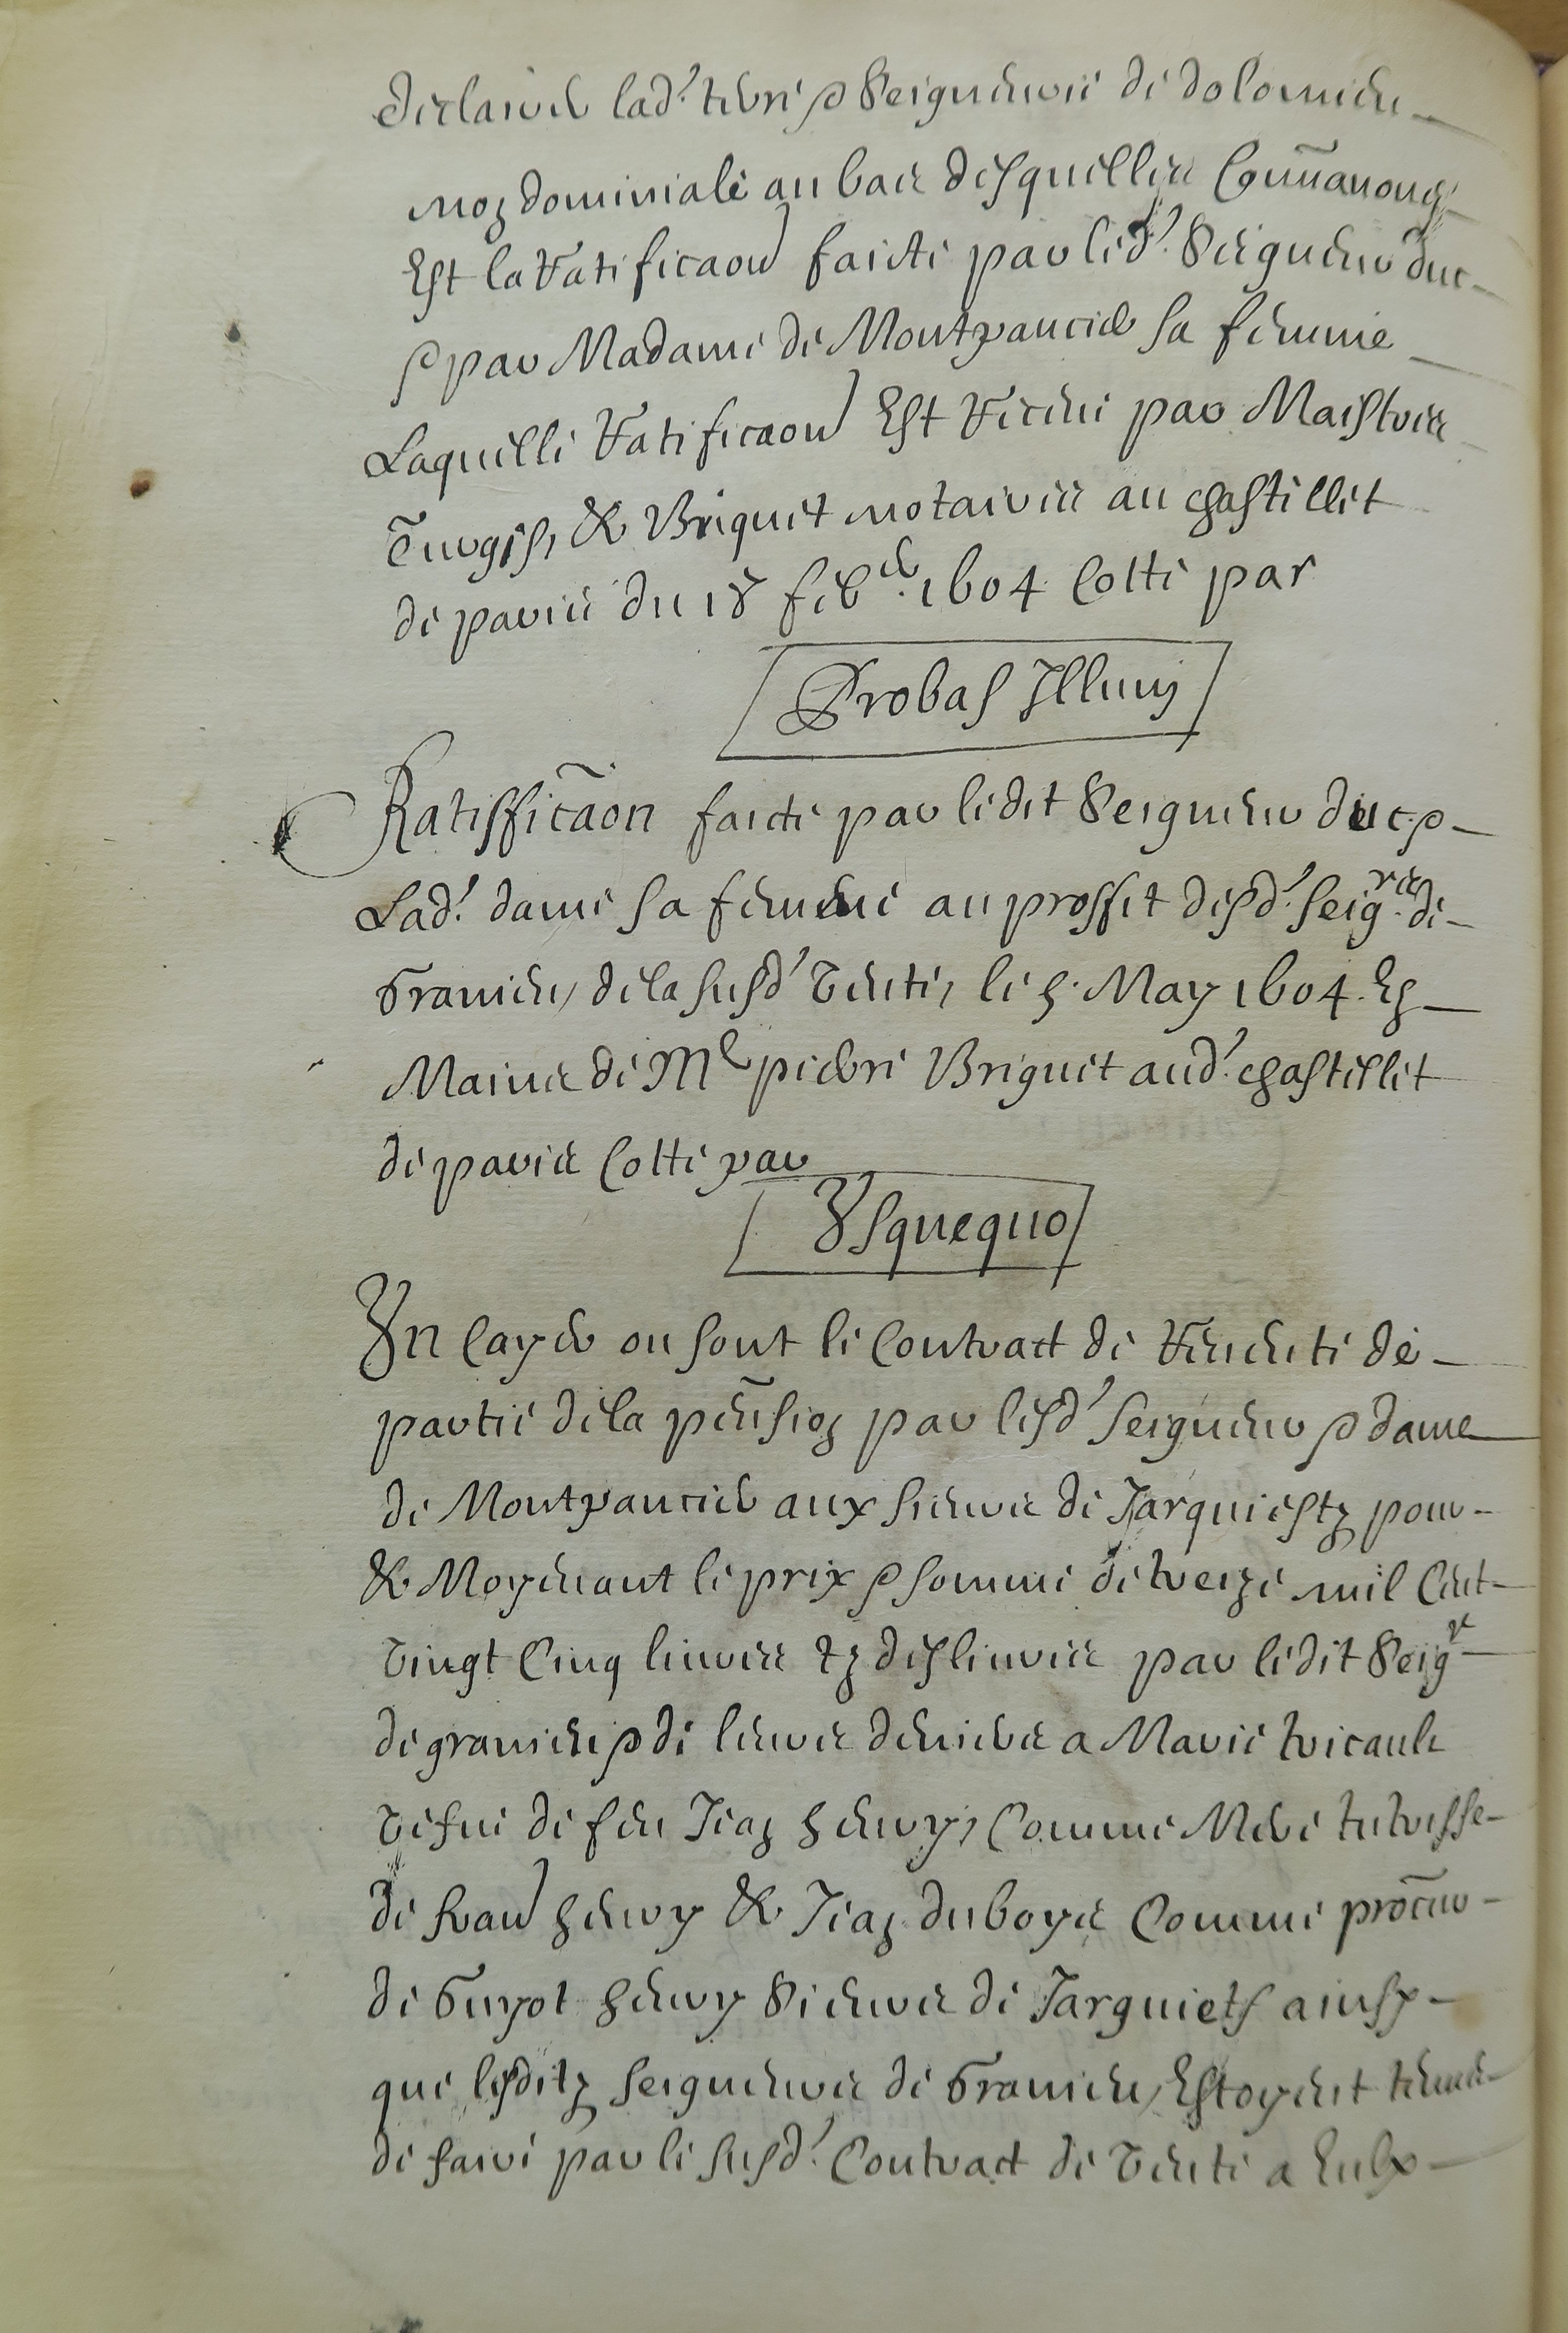 declairer lad' terre et Seigneurie de dolomieu
non dominiale au bas desquelles Convanons
Est la Ratificaon faicte par led' Seigneur duc
et par Madame de Montpancier sa femme
Laquelle Ratificaon Est Receue par Maistres
Turgis, & Briquet notaires au chastellet
de paris du 18 feber. 1604 Cotte par
Probas Illum
Ratifficãon faicte par ledit Seigneur duc et
Lad' dame sa femme au proffit desd' seigrs. de
Gramieu, de la susd' vente, le 5. May 1604. Es
Mains de Me pierre Briguet aud' chastellet
de paris Cotte par
Vsquequo
Vn Cayer ou sont le Contract de Revente de
partie de la pẽsion par lesd' seigneur et dame
de Montpancier aux sieurs de Jarquiestz pour
& Moyenant le prix et somme de treize mil Cent
vingt Cinq livres tz deslivres par ledit Seigr
de gramieu et de leurs deniers a Marie tricault
vefue de feu Jean henry, Comme Mere tutrisse
de fran henry & Jean duboys Comme procur
de Guyot henry Sieurs de Jarguiets ainsy
que lesditz seigneurs de Gramieu, Estoyent tenus
de faire par le susd' Contract de vente a Eulx